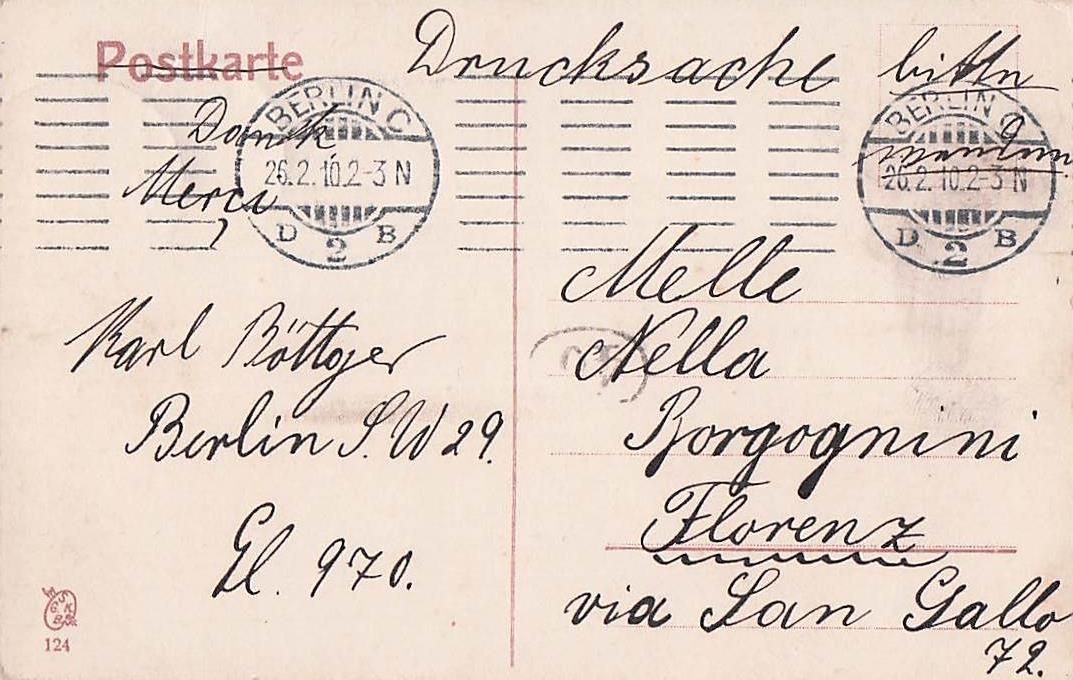 Postkarte
Drucksache
BERLIN C
26.2.10.2-3 N
D 2 B
BERLIN C
26.2.10.2-3 N
D 2 B
Dank
Merci
Karl Böttger
Berlin S.W 29.
El. 970.
124
Melle
Nella
Borgognini
Florenz
via San Gallo
72.